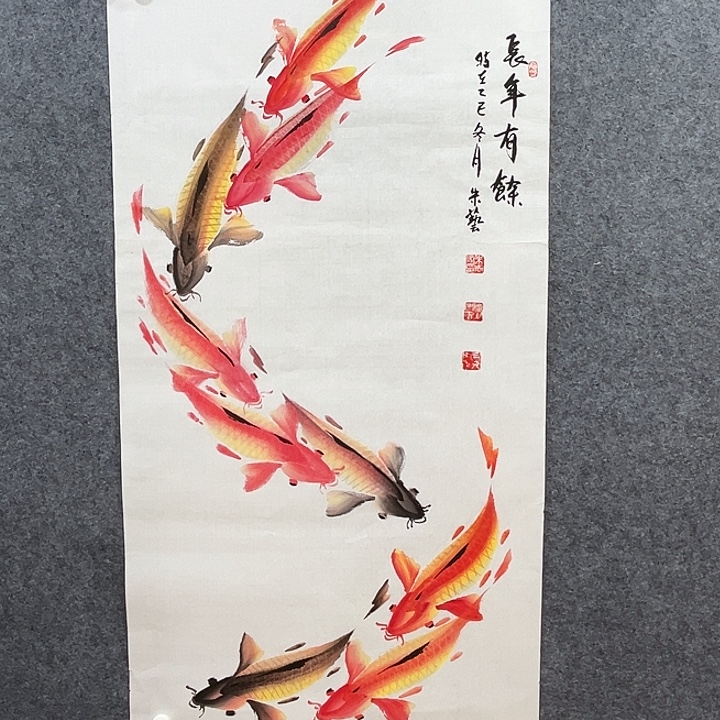 長年有餘
时在乙巳冬月 朱藝